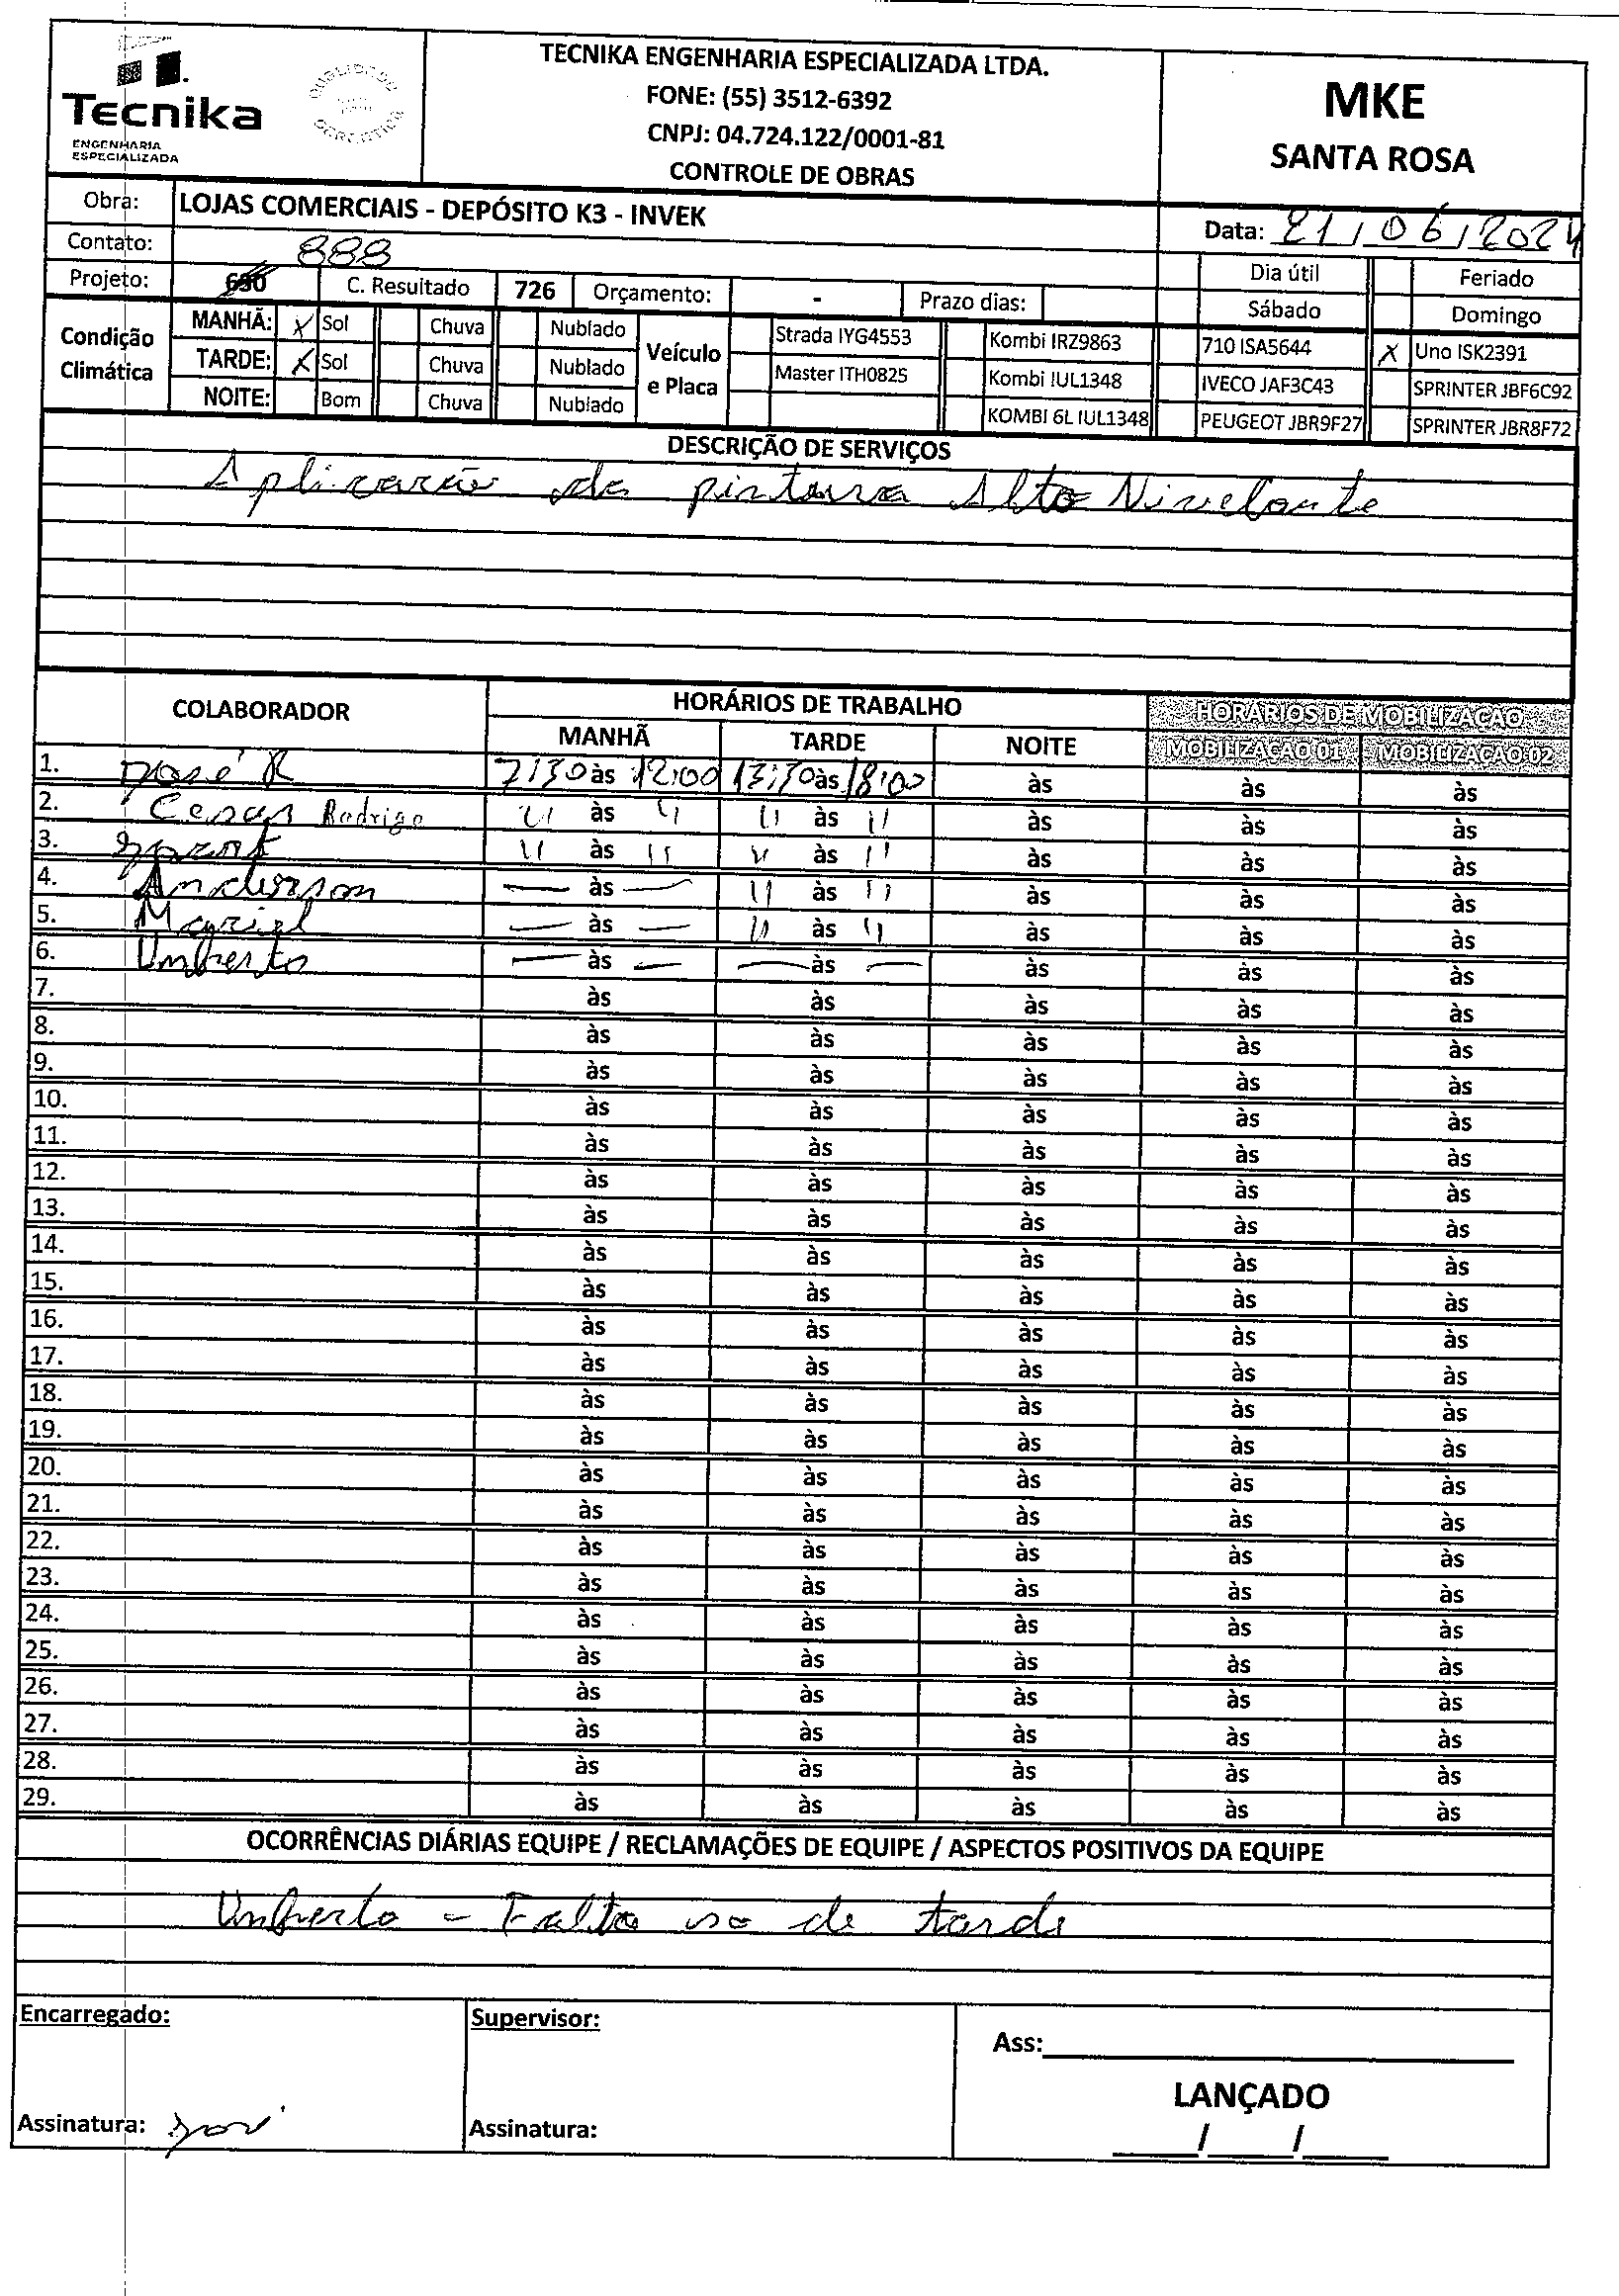 TECNIKA ENGENHARIA ESPECIALIZADA LTDA.
FONE: (55) 3512-6392
CNPJ: 04.724.122/0001-81
CONTROLE DE OBRAS
Tecnika
ENGENHARIA
ESPECIALIZADA
MKE
SANTA ROSA
Obra: LOJAS COMERCIAIS - DEPÓSITO K3 - INVEK
Data: 21/06/2024
Contato:
888
Projeto: 630 C. Resultado 726 Orçamento: - Prazo dias:
Dia útil Feriado
Sábado Domingo
Condição Climática
MANHÃ: X Sol Chuva Nublado
TARDE: X Sol Chuva Nublado
NOITE: Bom Chuva Nublado
Veículo e Placa
Strada IYG4553 Kombi IRZ9863 710 ISA5644 X Uno ISK2391
Master ITH0825 Kombi IUL1348 IVECO JAF3C43 SPRINTER JBF6C92
KOMBI 6L IUL1348 PEUGEOT JBR9F27 SPRINTER JBR8F72
DESCRIÇÃO DE SERVIÇOS
Aplicacão de pintura Alto Nivelante
COLABORADOR HORÁRIOS DE TRABALHO HORÁRIOS DE MOBILIZAÇÃO
MANHÃ TARDE NOITE MOBILIZAÇÃO 01 MOBILIZAÇÃO 02
1. José R 7:30 às 12:00 13:30 às 18:00 às às às
2. Cesar Rodrigo " às " " às " às às às
3. " às " " às " às às às
4. Anderson — às — " às " às às às
5. — às — " às " às às às
6. Umberto — às — — às — às às às
7. às às às às às
8. às às às às às
9. às às às às às
10. às às às às às
11. às às às às às
12. às às às às às
13. às às às às às
14. às às às às às
15. às às às às às
16. às às às às às
17. às às às às às
18. às às às às às
19. às às às às às
20. às às às às às
21. às às às às às
22. às às às às às
23. às às às às às
24. às às às às às
25. às às às às às
26. às às às às às
27. às às às às às
28. às às às às às
29. às às às às às
OCORRÊNCIAS DIÁRIAS EQUIPE / RECLAMAÇÕES DE EQUIPE / ASPECTOS POSITIVOS DA EQUIPE
Umberto - Falta de tarde
Encarregado: Supervisor: Ass:
LANÇADO
Assinatura: José Assinatura: / /